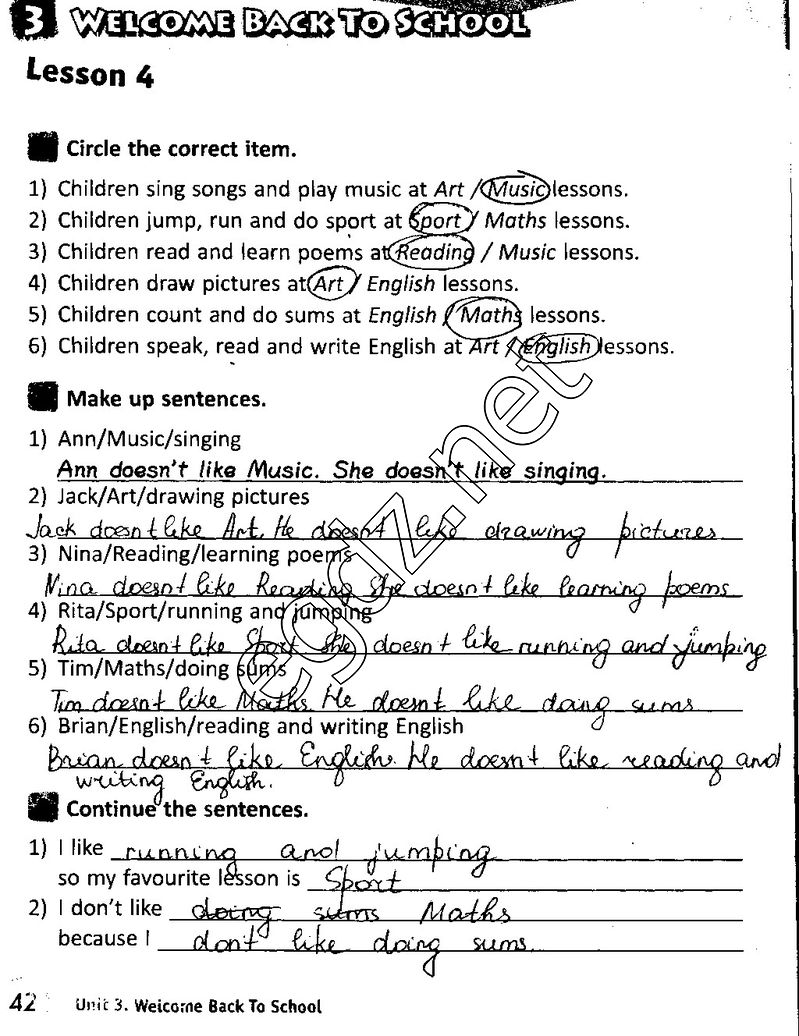 3 WELCOME BACK TO SCHOOL
Lesson 4
Circle the correct item.
1) Children sing songs and play music at Art / Music lessons.
2) Children jump, run and do sport at Sport / Maths lessons.
3) Children read and learn poems at Reading / Music lessons.
4) Children draw pictures at Art / English lessons.
5) Children count and do sums at English / Maths lessons.
6) Children speak, read and write English at Art / English lessons.
Make up sentences.
1) Ann/Music/singing
Ann doesn't like Music. She doesn't like singing.
2) Jack/Art/drawing pictures
Jack doesn't like Art. He doesn't like drawing pictures.
3) Nina/Reading/learning poems
Nina doesn't like Reading She doesn't like learning poems
4) Rita/Sport/running and jumping
Rita doesn't like Sport She doesn't like running and jumping
5) Tim/Maths/doing sums
Tim doesn't like Maths. He doesn't like doing sums
6) Brian/English/reading and writing English
Brian doesn't like English. He doesn't like reading and
writing English.
Continue the sentences.
1) I like running and jumping
so my favourite lesson is Sport
2) I don't like doing sums Maths
because I don't like doing sums.
42 Unit 3. Welcome Back To School
egdz.net